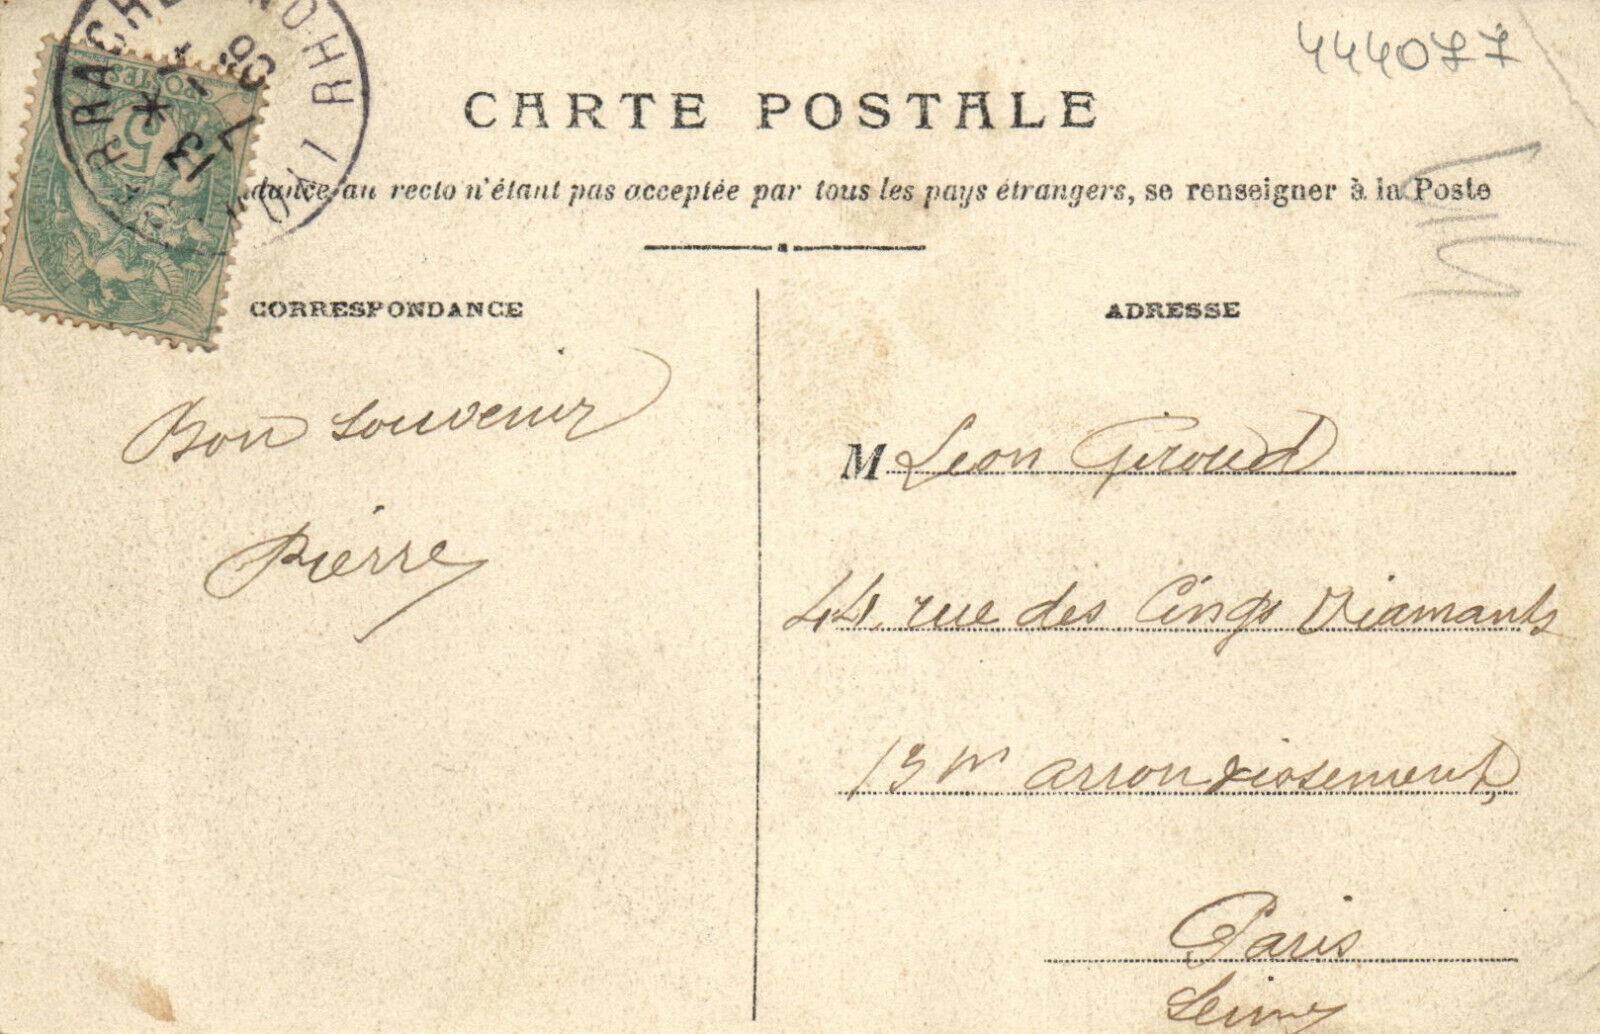 444077
CARTE POSTALE
dance au recto n'étant pas acceptée par tous les pays étrangers, se renseigner à la Poste
POSTES
5
RRACHE
RHONE
LYON
13 * 
7
CORRESPONDANCE
ADRESSE
Bon souvenir
Pierre
M Leon Giroud
44, rue des Cinqs Diamants
13me arrondissement,
Paris
Seine